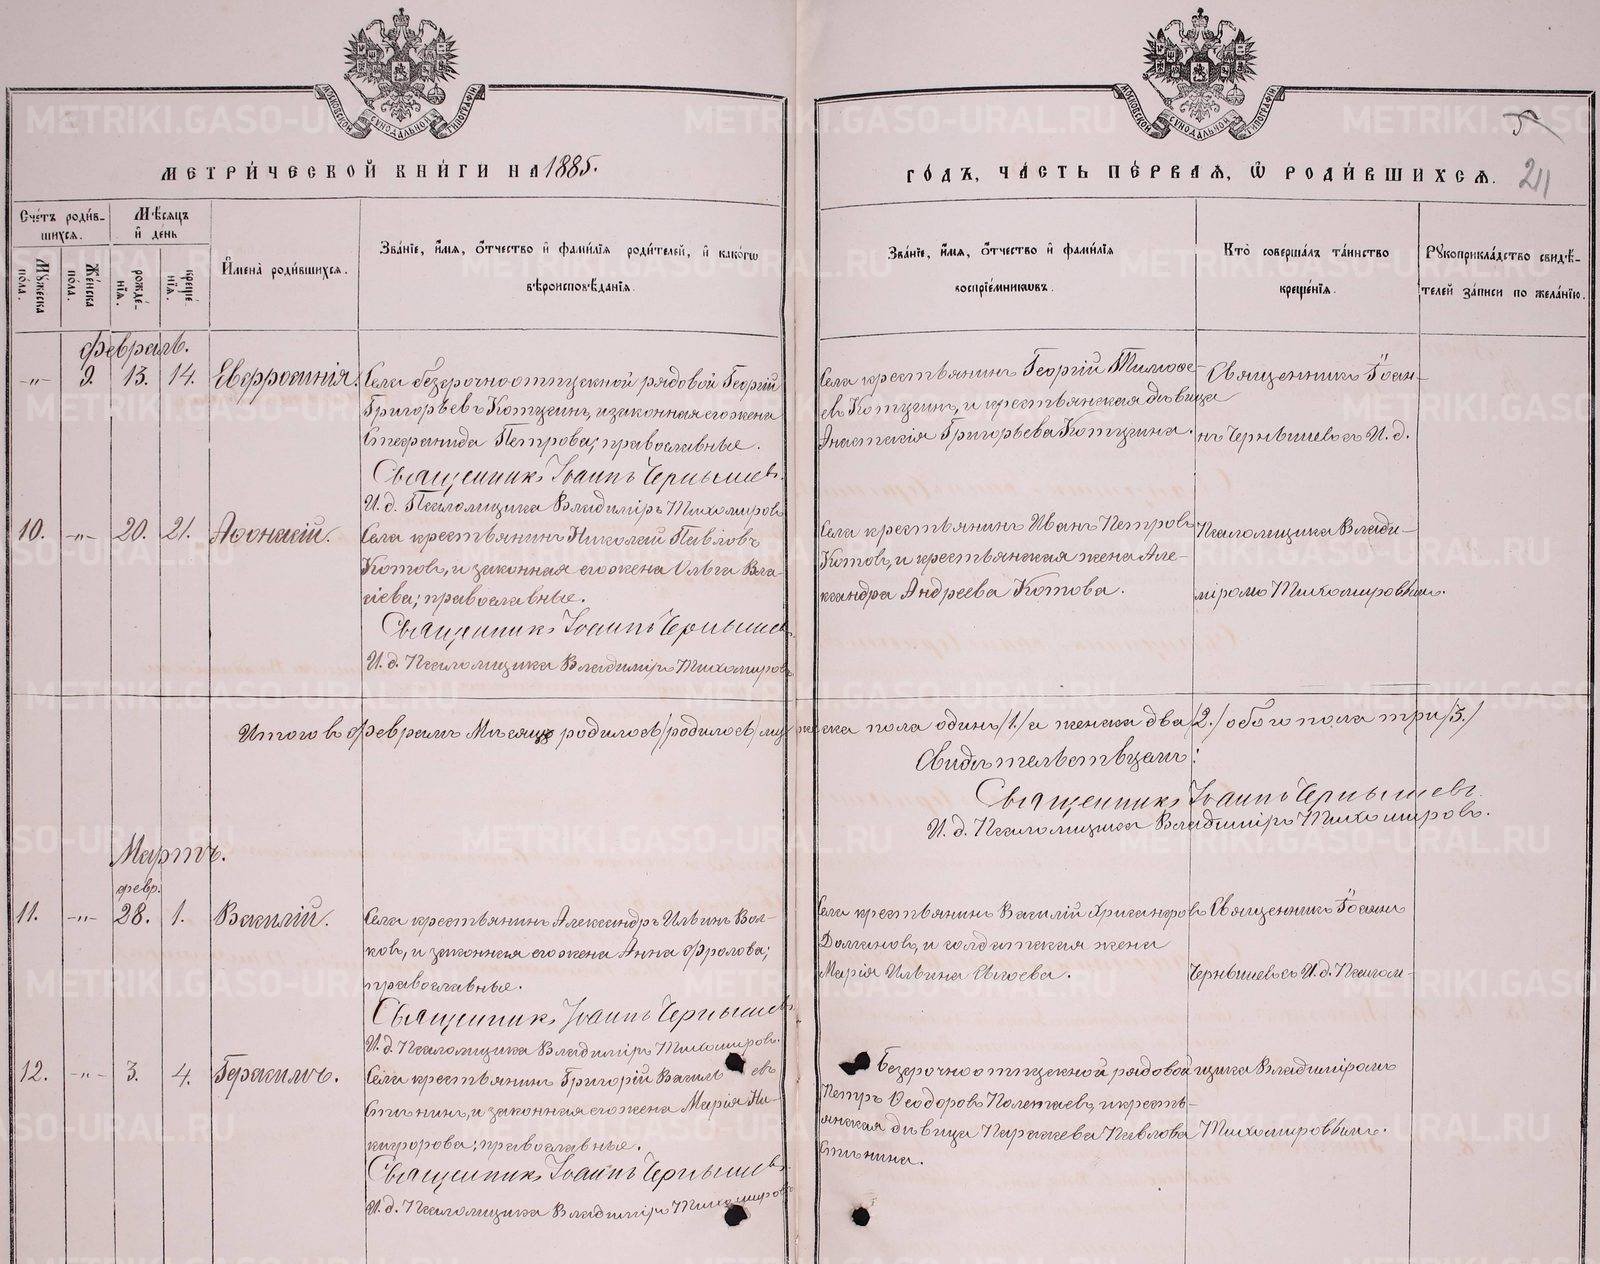 МОСКОВСКОЙ СѴНОДАЛЬНОЙ ТИПОГРАФІИ
МОСКОВСКОЙ СѴНОДАЛЬНОЙ ТИПОГРАФІИ
5
211
МЕТРИ́ЧЕСКОЙ КНИ́ГИ НА 1885.
ГО́ДЪ, ЧА́СТЬ ПЕ́РВАѦ, Ѡ РОДИ́ВШИХСѦ.
Сче́тъ роди́вшихсѧ.
Мꙋжеска по́ла.
Же́нска по́ла.
Мѣ́сѧцъ и҆ де́нь
рожде́нїѧ.
креще́нїѧ.
И҆мена̀ роди́вшихсѧ.
Зва́нїе, и҆́мѧ, ѻ҆́тчество и҆ фами́лїѧ роди́телей, и҆ како́гѡ
вѣроисповѣ́данїѧ.
Зва́нїе, и҆́мѧ, ѻ҆́тчество и҆ фами́лїѧ
воспрїе́мникѡвъ.
Кто̀ соверша́лъ та́инство
креще́нїѧ.
Рꙋкоприкла́дство свидѣ́-
телей за́писи по жела́нїю.
Февраль.
-"- 9. 13. 14. Евфросинія.
Села безсрочноотпускной рядовой Георгій
Григорьевъ Котугинъ, и законная его жена
Стефанида Петрова; православные.
Священникъ Іоаннъ Чернышевъ.
И. д. Псаломщика Владиміръ Тихомировъ
Села крестьянинъ Георгій Тимофе-
евъ Котугинъ, и крестьянская дѣвица
Анастасія Григорьева Котугина.
Священникъ Іоан-
нъ Чернышевъ съ И. д.
10. -"- 20. 21. Аѳонасій.
Села крестьянинъ Николай Павловъ
Котовъ, и законная его жена Ольга Вла-
сіева; православные.
Священникъ Іоаннъ Чернышевъ
И. д. Псаломщика Владиміръ Тихомировъ
Села крестьянинъ Иванъ Петровъ
Котовъ, и крестьянская жена Але-
ксандра Андреева Котова.
Псаломщика Влади-
міромъ Тихомировымъ.
Итого въ Февралѣ Мѣсяцѣ родилось /родилось/ мужеска пола одинъ /1./ а женска два /2./ обоего пола три /3./
Свидѣтельствуемъ:
Священникъ Іоаннъ Чернышевъ.
И. д. Псаломщика Владиміръ Тихомировъ.
Мартъ.
февр.
11. -"- 28. 1. Василій.
Села крестьянинъ Александръ Ильинъ Вол-
ковъ, и законная его жена Анна Фролова;
православные.
Священникъ Іоаннъ Чернышевъ
И. д. Псаломщика Владиміръ Тихомировъ.
Села крестьянинъ Василій
и солдатская жена
Марія Ильина
Священникъ Іоаннъ
Чернышевъ съ И. д. Псалом-
12. -"- 3. 4. Герасимъ.
Села крестьянинъ Григорій Васильевъ
Стѣнинъ, и законная его жена Марія Ни-
кифорова; православные.
Священникъ Іоаннъ Чернышевъ.
И. д. Псаломщика Владиміръ Тихомировъ
Безсрочноотпускной рядовой
Петръ Ѳеодоровъ Полетаевъ, и кресть-
янская дѣвица Параскева Павлова
Стѣнина.
щика Владиміромъ
Тихомировымъ.
METRIKI.GASO-URAL.RU